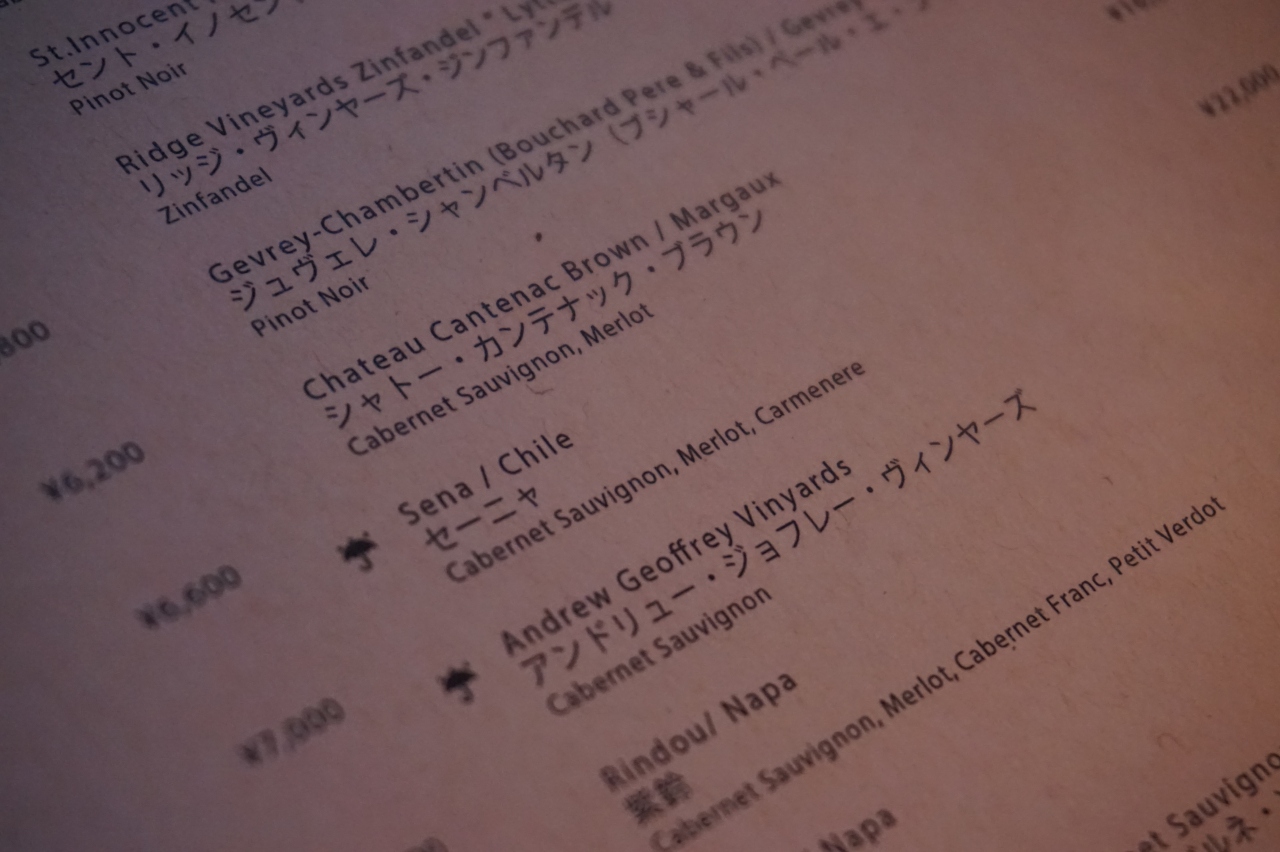 St.Innocent
セント・イノセン
Pinot Noir
Ridge Vineyards Zinfandel
リッジ・ヴィンヤーズ・ジンファンデル
Zinfandel
Gevrey-Chambertin (Bouchard Pere & Fils) / Gevrey
ジュヴェレ・シャンベルタン（ブシャール・ペール・エ・
Pinot Noir
Chateau Cantenac Brown / Margaux
シャトー・カンテナック・ブラウン
Cabernet Sauvignon, Merlot
Sena / Chile
セーニャ
Cabernet Sauvignon, Merlot, Carmenere
Andrew Geoffrey Vinyards
アンドリュー・ジョフレー・ヴィンヤーズ
Cabernet Sauvignon
Rindou/ Napa
紫鈴
Cabernet Sauvignon, Merlot, Cabernet Franc, Petit Verdot
Napa
800
¥6,200
¥6,600
¥7,000
¥22,000
et Sauvigno
ルネ・